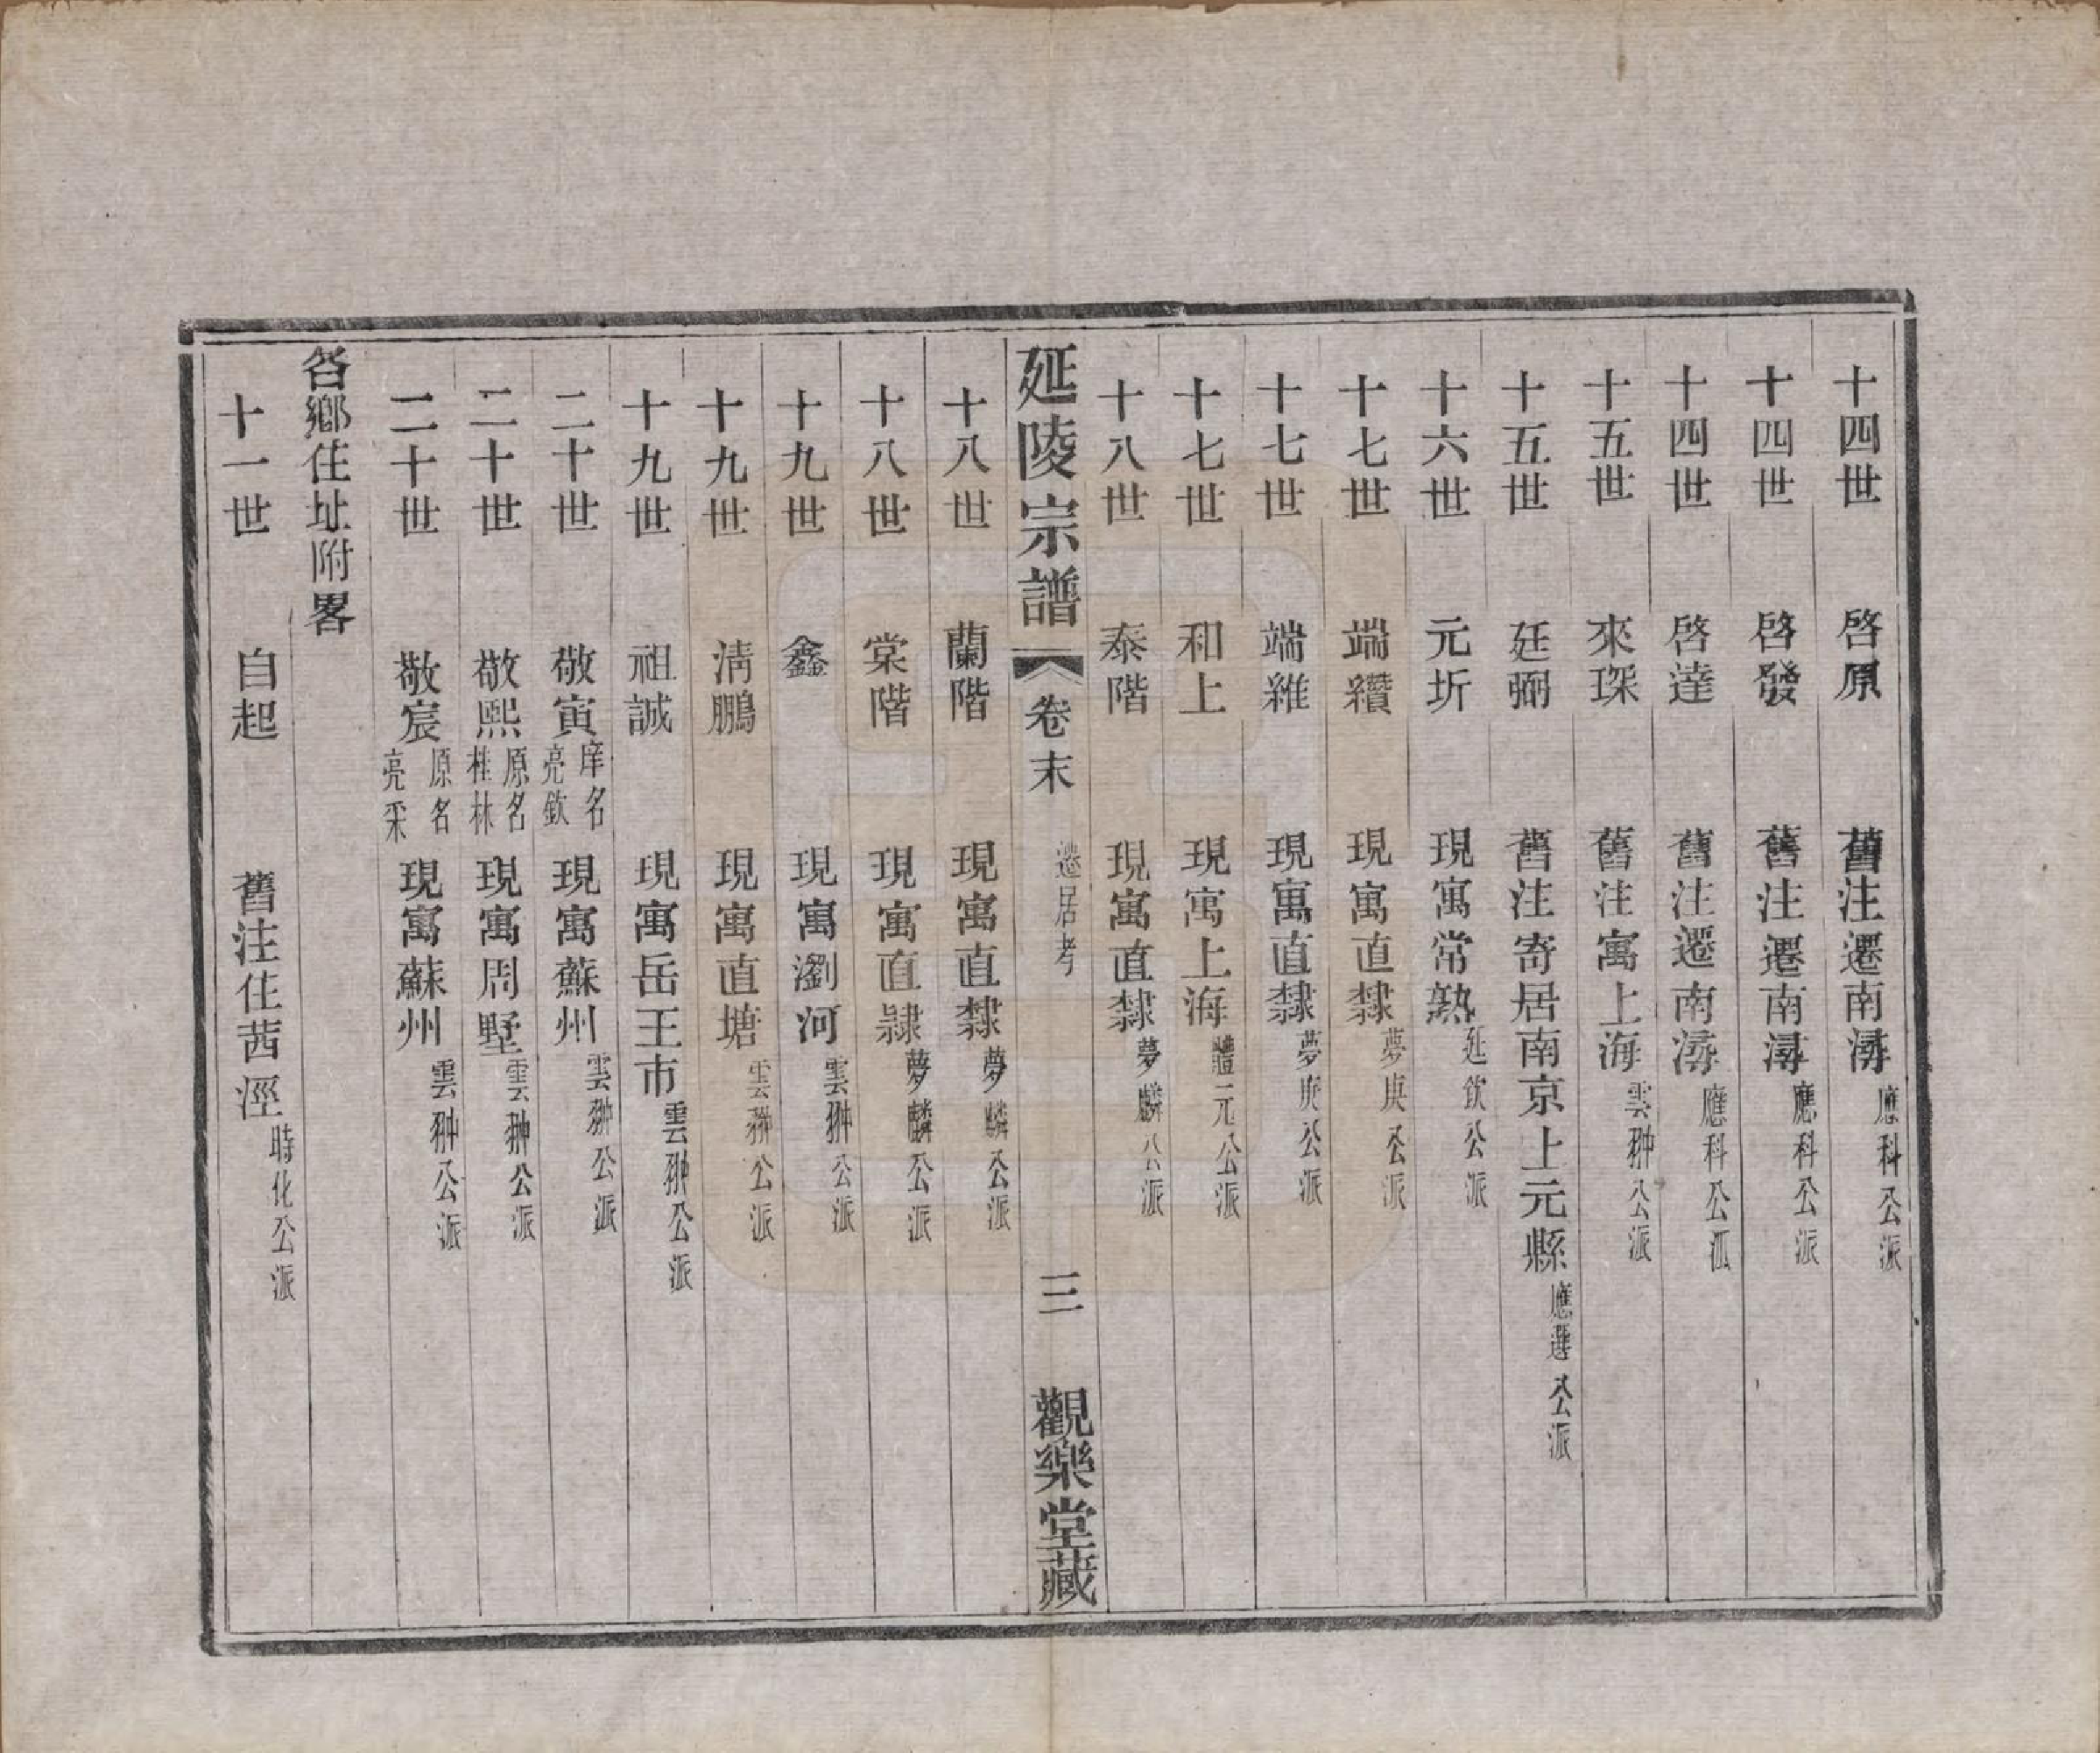 十四世 啓原 舊注遷南潯應科公派
十四世 啓發 舊注遷南潯應科公派
十四世 啓達 舊注遷南潯應科公派
十五世 來琛 舊注寓上海雲翀公派
十五世 廷弼 舊注寄居南京上元縣應選公派
十六世 元圻 現寓常熟延欽公派
十七世 端纘 現寓直隸夢庚公派
十七世 端維 現寓直隸夢庚公派
十七世 和上 現寓上海體元公派
十八世 泰階 現寓直隸夢麟公派
延陵宗譜 卷末 遷居考 三 觀樂堂藏
十八世 蘭階 現寓直隸夢麟公派
十八世 棠階 現寓直隸夢麟公派
十九世 鑫 現寓瀏河雲翀公派
十九世 清鵬 現寓直塘雲翀公派
十九世 祖誠 現寓岳王市雲翀公派
二十世 敬寅庠名亮欽 現寓蘇州雲翀公派
二十世 敬熙原名桂林 現寓周墅雲翀公派
二十世 敬宸原名亮采 現寓蘇州雲翀公派
各鄉住址附畧
十一世 自起 舊注住茜涇時化公派